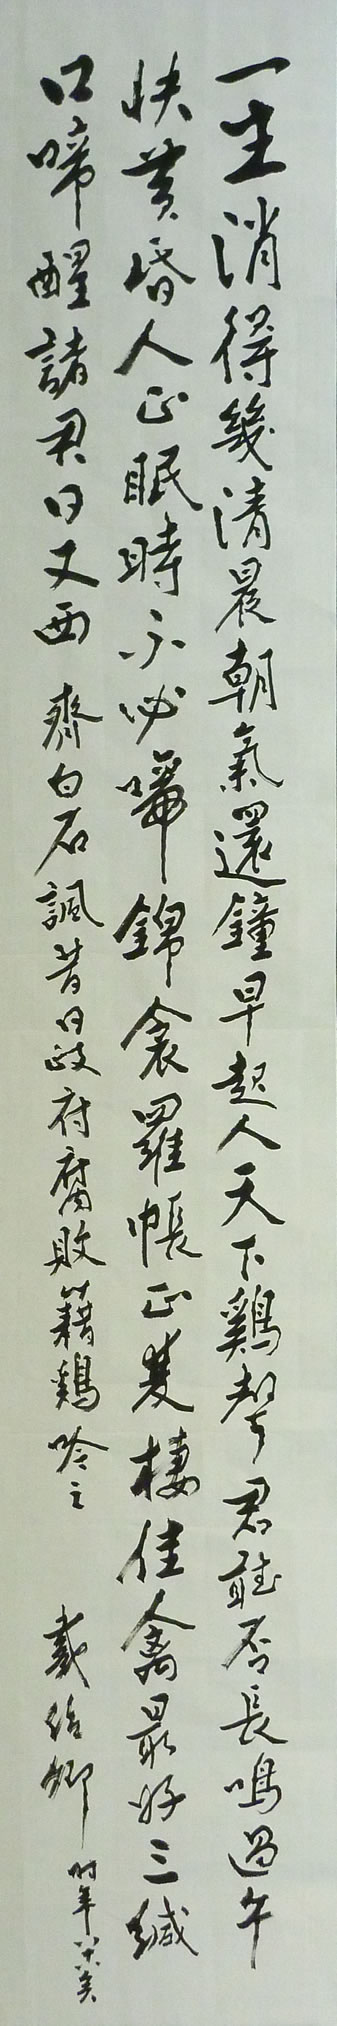 一生消得幾清晨朝氣還鐘早起人天下鷄聲君聽否長鳴過午
快黃昏人正眠時不必啼錦衾羅帳正雙棲佳禽最好三緘
口啼醒諸君日又西 齊白石諷昔日政府腐敗藉鷄吟之 戴 卿 時年